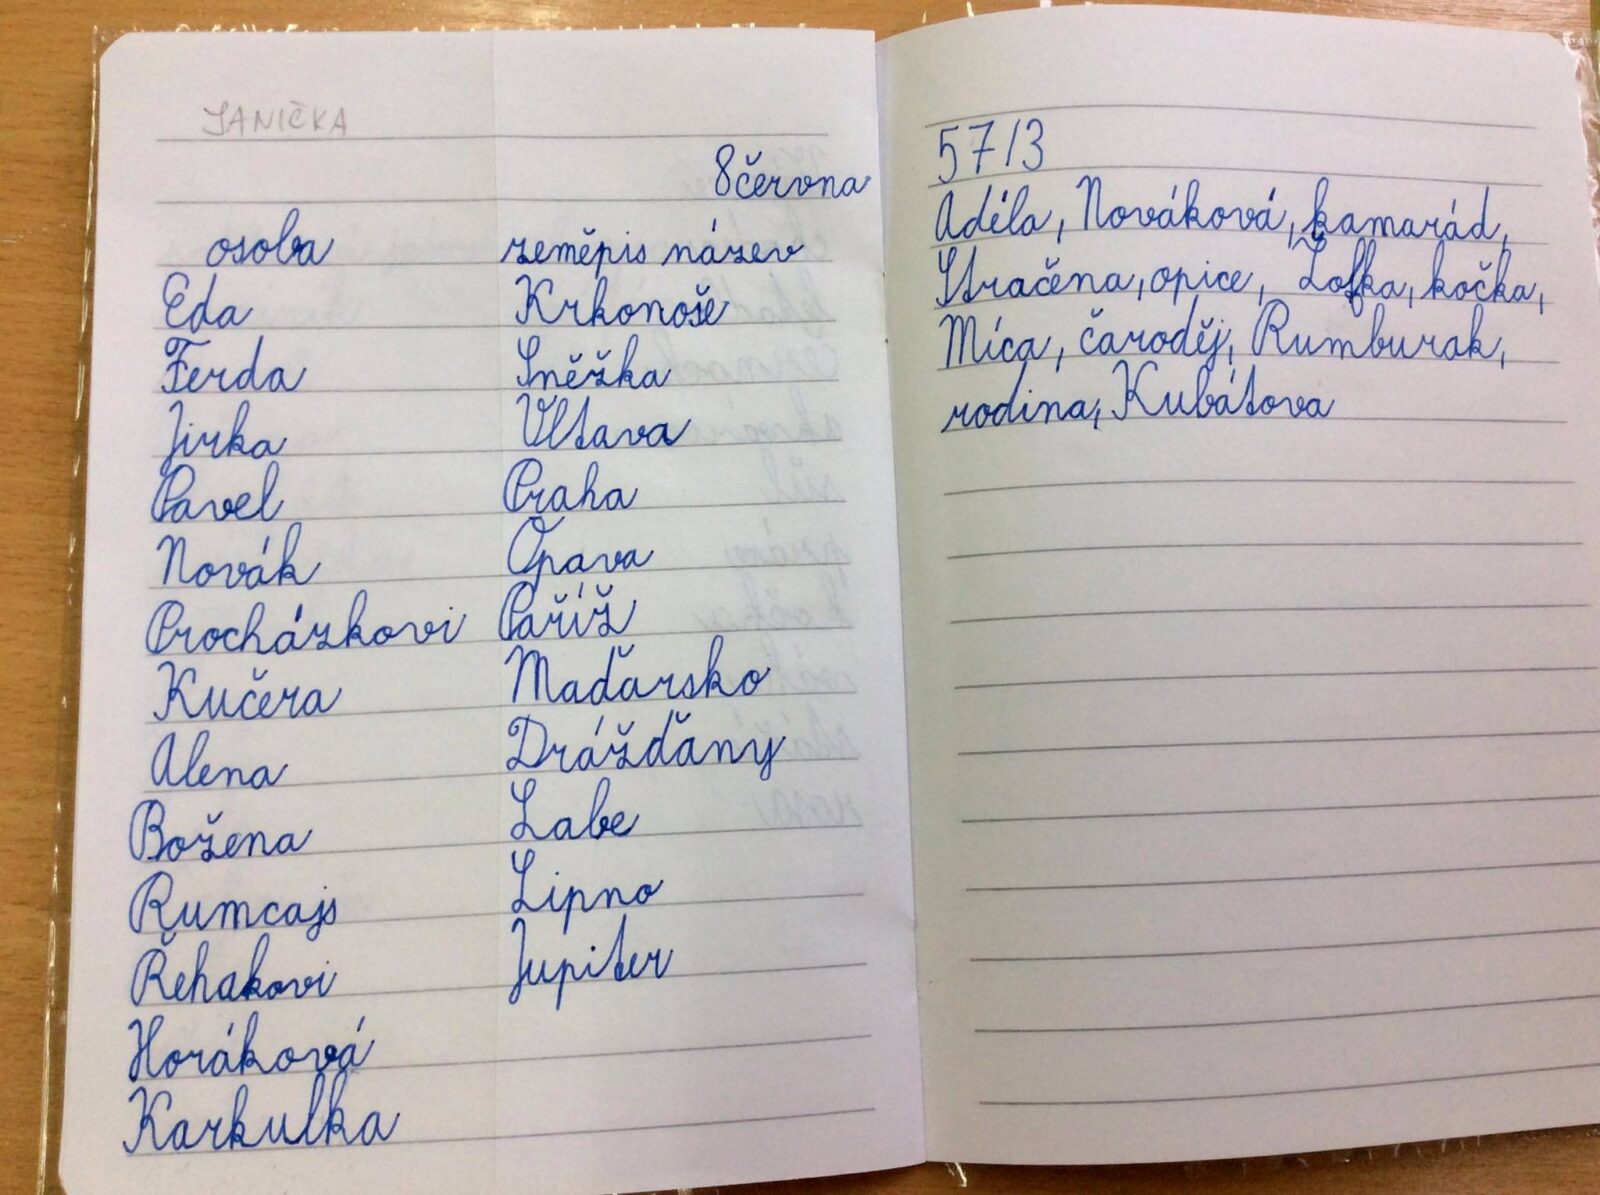 JANIČKA
8 června
osoba zeměpis název
Eda Krkonoše
Ferda Sněžka
Jirka Vltava
Pavel Praha
Novák Opava
Procházkovi Paříž
Kučera Maďarsko
Alena Drážďany
Božena Labe
Rumcajs Lipno
Řehakovi Jupiter
Horáková
Karkulka
57/3
Adéla, Nováková, kamarád,
Stračena, opice, Žofka, kočka,
Míca, čaroděj, Rumburak,
rodina, Kubátova